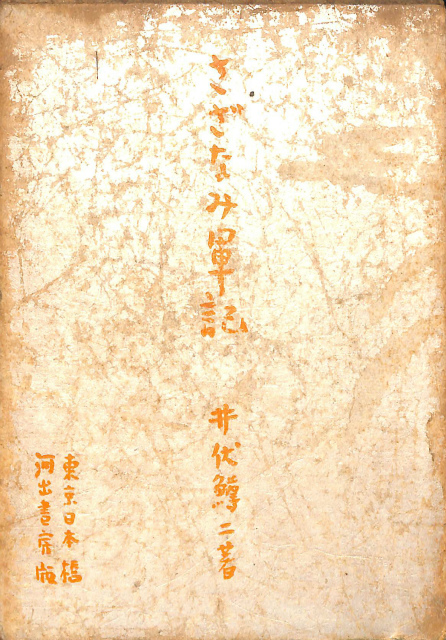 さざなみ軍記
井伏鱒二著
東京日本橋
河出書房版